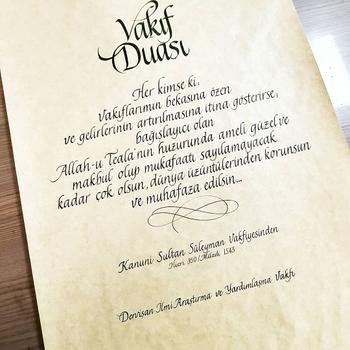 Vakıf
Duası
Her kimse ki;
Vakıflarımın bekasına özen
ve gelirlerinin artırılmasına itina gösterirse,
bağışlayıcı olan
Allah-u Teala'nın huzurunda ameli güzel ve
makbul olup mukafaatı sayılamayacak
kadar çok olsun, dünya üzüntülerinden korunsun
ve muhafaza edilsin...
Kanuni Sultan Süleyman Vakfiyesinden
Hicri 950/Miladi 1543
Dervişan İlmi Araştırma ve Yardımlaşma Vakfı